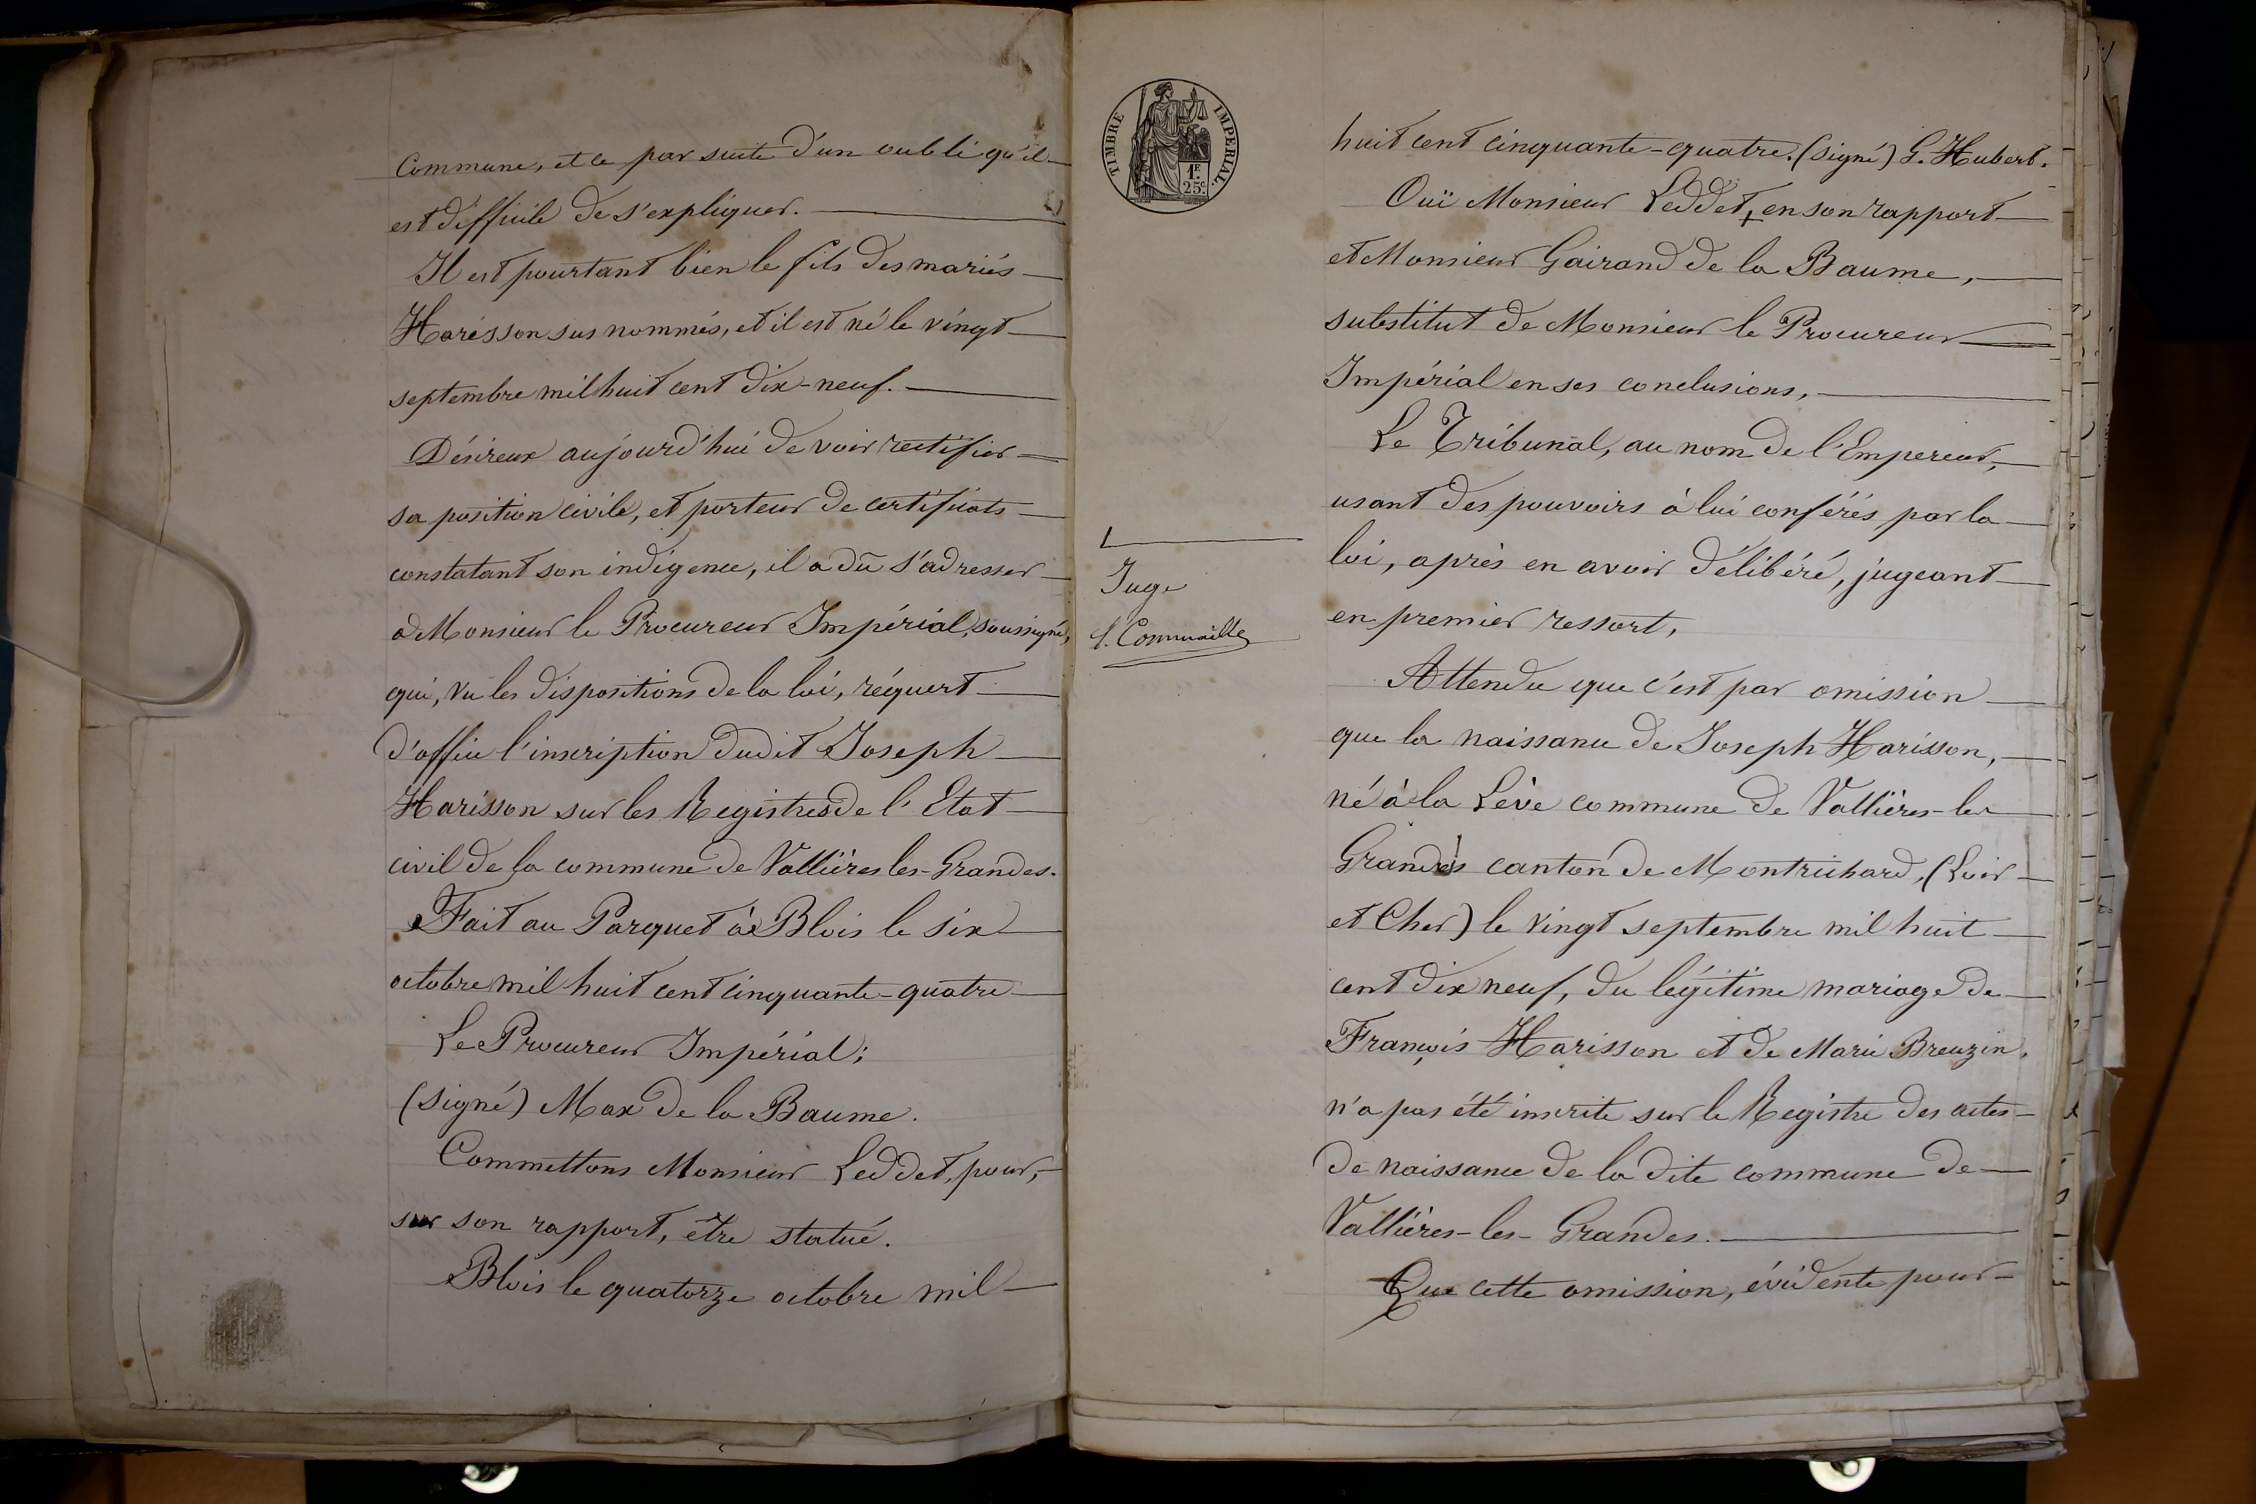 Commune, et ce par suite d'un oubli qu'il
est difficile de s'expliquer.
Il est pourtant bien le fils des mariés
Harisson sus nommés, et il est né le vingt
septembre mil huit cent dix-neuf.
Désireux aujourd'hui de voir rectifier
sa position civile, et porteur de certificats
constatant son indigence, il a dû s'adresser
à Monsieur le Procureur Impérial, soussigné,
qui, vu les dispositions de la loi, réquert
d'office l'inscription dudit Joseph
Harisson sur les Registres de l'Etat
civil de la commune de Vallières les-Grandes.
Fait au Parquet à Blois le six
octobre mil huit cent cinquante-quatre
Le Procureur Impérial;
(signé) Max de la Baume.
Commettons Monsieur Leddet, pour,
sur son rapport, être statué.
Blois le quatorze octobre mil
TIMBRE IMPERIAL.
1F.
25c.
huit cent cinquante-quatre. (signé) G. Hubert.
Ouï Monsieur Leddet, en son rapport
et Monsieur Gairand de la Baume,
substitut de Monsieur le Procureur
Impérial en ses conclusions,
Le Tribunal, au nom de l'Empereur,
usant des pouvoirs à lui conférés par la
loi, après en avoir délibéré, jugeant
en premier ressort,
Attendu que c'est par omission
que la naissance de Joseph Harisson,
né à la Lève commune de Vallières-les
Grandes canton de Montrichard, (Loir
et Cher) le vingt septembre mil huit
cent dix neuf, du légitime mariage de
François Harisson et de Marie Breuzin,
n'a pas été inscrite sur le Registre des actes
de naissance de la dite commune de
Vallières-les-Grandes.
Que cette omission, évidente pour
Juge